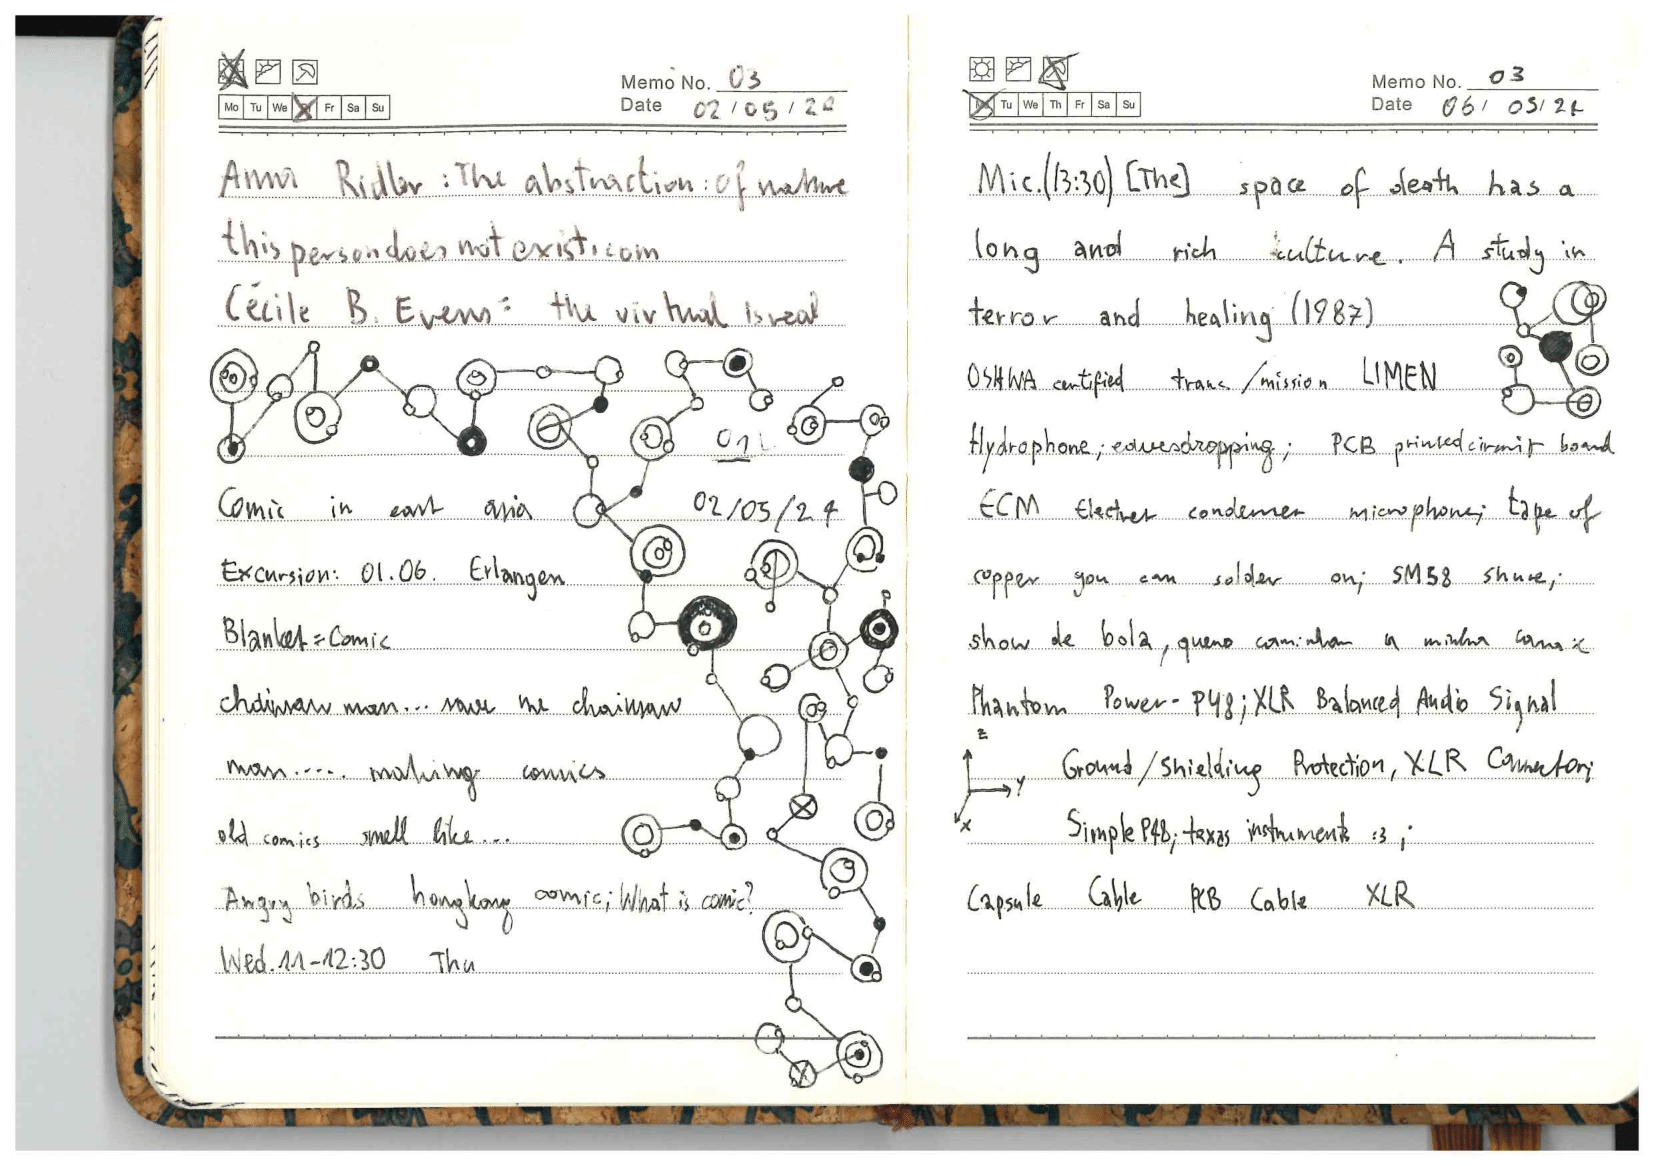 Memo No. 03
Mo Tu We Fr Sa Su
Date 02/05/24
Anna Ridler: The abstraction: of nature
thispersondoesnotexist.com
Cécile B. Evens: the virtual is real
01
Comic in east asia 02/05/24
Excursion: 01.06. Erlangen
Blanket = Comic
chainsaw man... save me chainsaw
man..... making comics
old comics smell like...
Angry birds hongkong comic; What is comic?
Wed. 11-12:30 Thu
Memo No. 03
Tu We Th Fr Sa Su
Date 06/05/24
Mic. (13:30) [The] space of death has a
long and rich culture. A study in
terror and healing (1987)
OSHWA certified trans/mission LIMEN
Hydrophone; eavesdropping; PCB printed circuit board
ECM Electret condenser microphone; tape of
copper you can solder on; SM58 shure;
show de bola, caminhar a minha
Phantom Power - P48; XLR Balanced Audio Signal
Z
Y
X
Ground/Shielding Protection, XLR Connector;
Simple P48; texas instruments :3 ;
Capsule Cable PCB Cable XLR